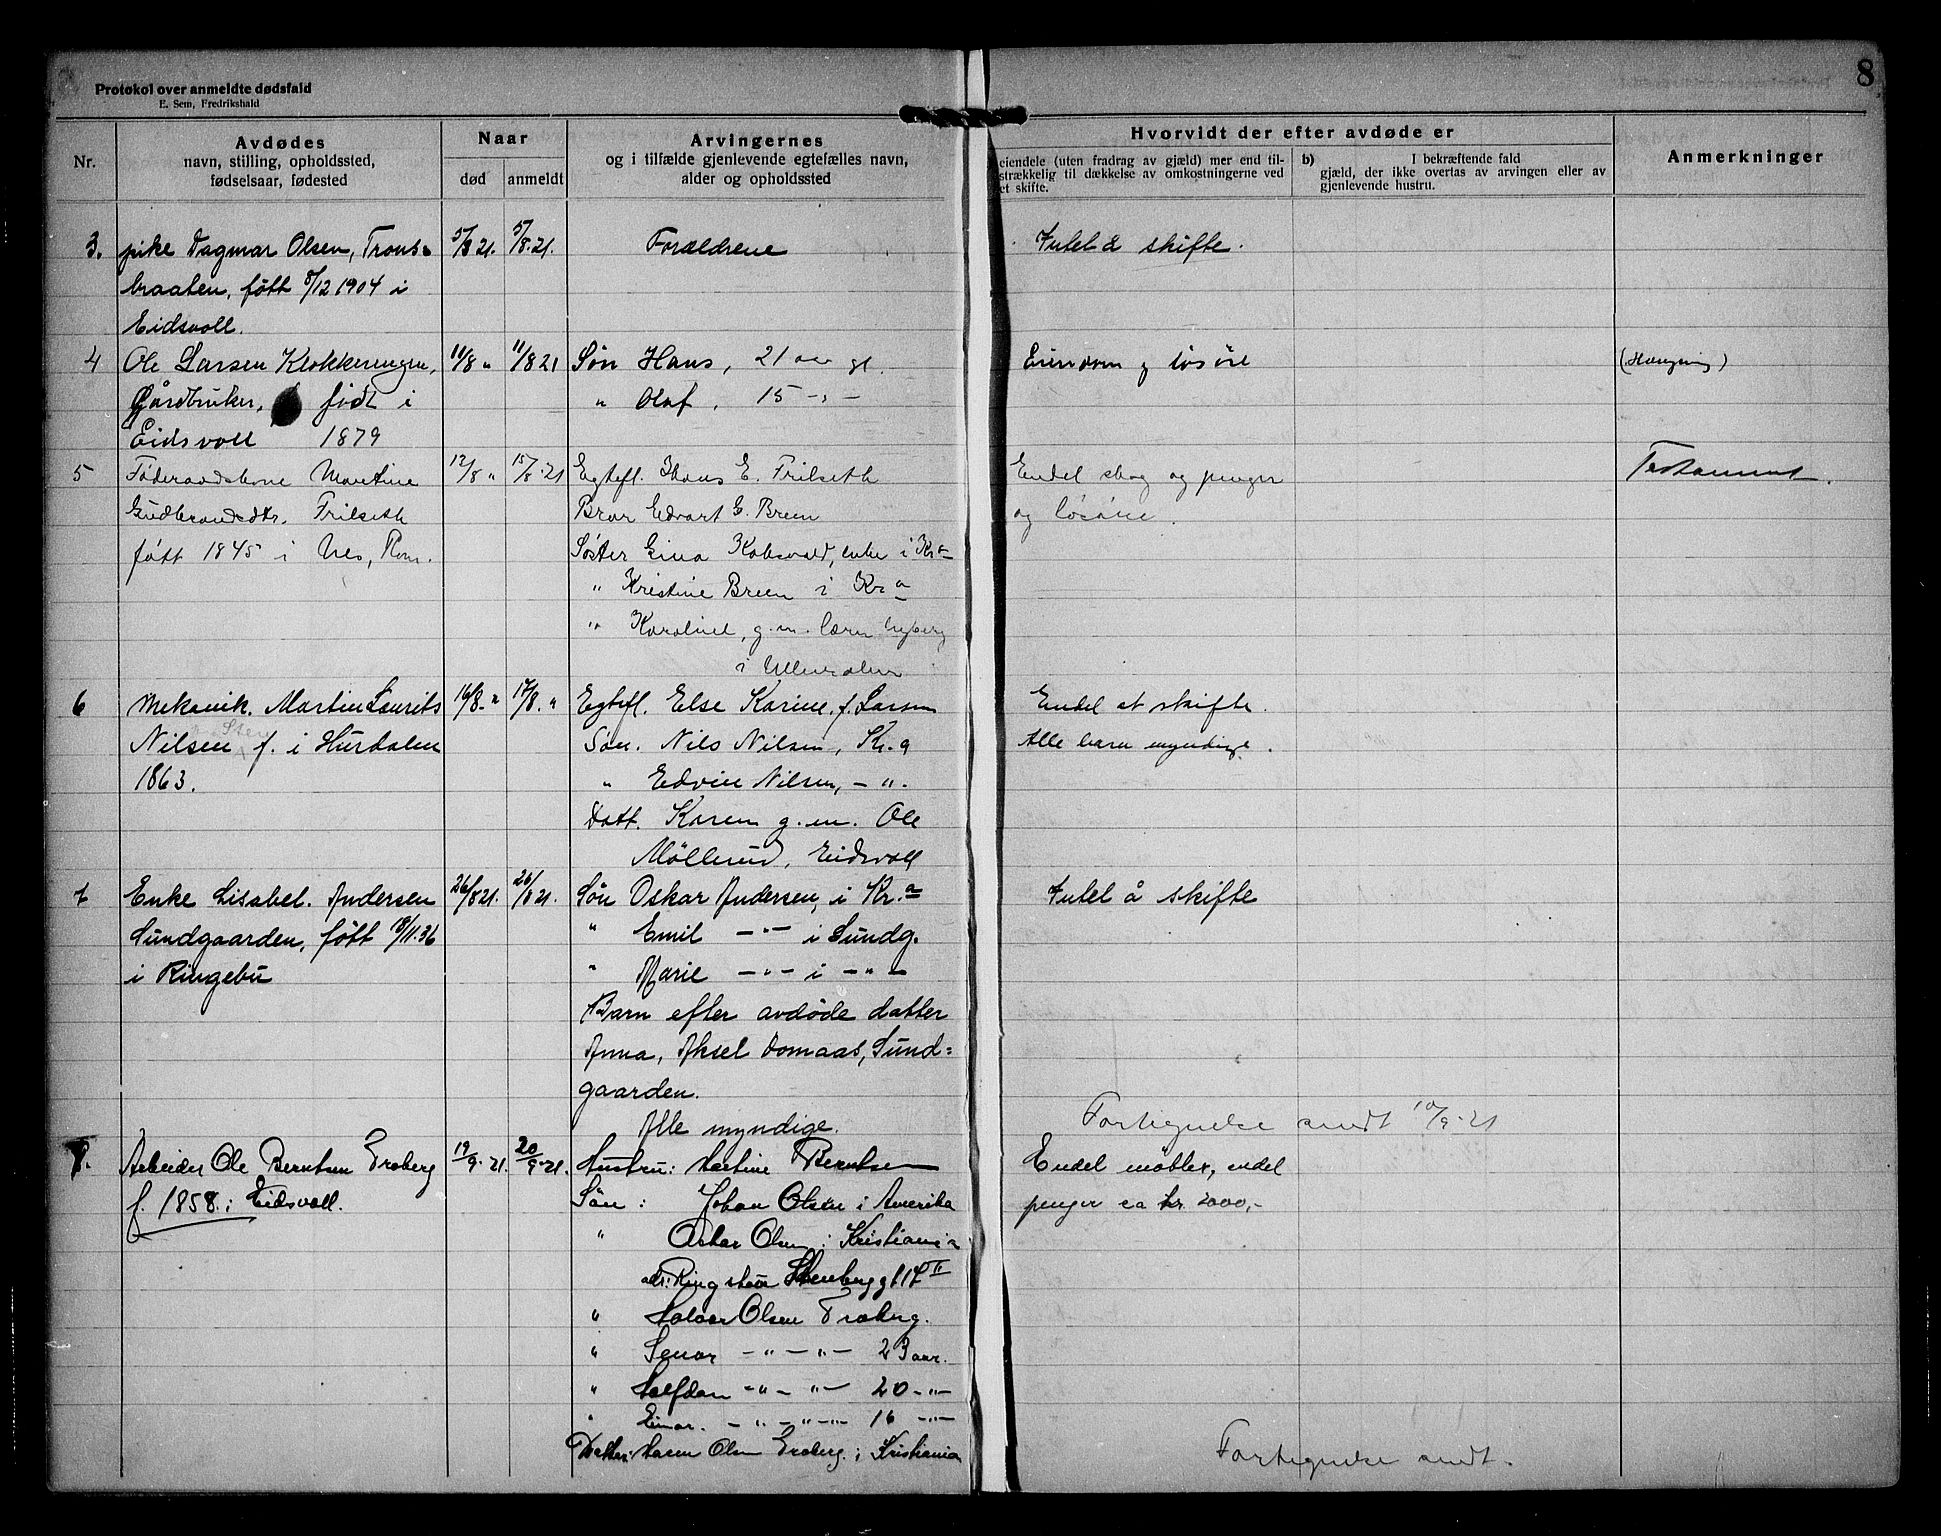 8
Protokol over anmeldte dødsfald
E. Sem, Fredrikshald
Nr.
Avdødes
navn, stilling, opholdssted,
fødselsaar, fødested
Naar
død
anmeldt
Arvingernes
og i tilfælde gjenlevende egtefælles navn,
alder og opholdssted
Hvorvidt der efter avdøde er
eiendele (uten fradrag av gjæld) mer end til-
strækkelig til dækkelse av omkostningerne ved
et skifte.
b) I bekræftende fald
gjæld, der ikke overtas av arvingen eller av
gjenlevende hustru.
Anmerkninger
3. pike Dagmar Olsen, Trons- 5/8 21. 5/8.21. Forældrene Intel å skifte.
braaten, født 8/12 1904 i
Eidsvoll.
4 Ole Larsen Klokkerengen, 11/8 " 11/8 21 Søn Hans, 21 aar gl. Eiendom og løsøre
Gårdbruker, født i " Olaf, 15 -"-
Eidsvoll 1879
5 Føderaadskone Martine 12/8 " 15/8.21 Egtefl. Hans E. Frilseth Endel skog og penger Testament.
Gudbrandsdtr. Frilseth Bror Edvart G. Breen og løsøre.
født 1845 i Nes, Rom. Søster Gina enke i Kr.a
" Kristine Breen i Kr a
" Karoline, g.m. Nyberg
i Ullensaker
6 Mekanik. Martin Laurits 16/8 - " 17/8. " Egtefl. Else Karine, f. Larsen Endel at skifte.
Nilsen f. i Hurdalen Søn. Nils Nilsen, Kr.a Alle barn myndige.
1863. " Edvin Nilsen, - ".
Datt. Karen g.m. Ole
Møllerud, Eidsvoll
7 Enke Lisabet. Andersen 26/8 21. 26/8 21. Søn Oskar Andersen, i Kr.a Intel å skifte
Sundgaarden, født 18/11.36 " Emil -"- i Sundg.
i Ringebu " Marie -"- i -"-
Barn efter avdøde datter
Anna, Aksel Domaas, Sund=
gaarden.
Alle myndige. Fortegnelse sendt 10/9-21
8. Arbeider Ole Berntsen Froberg 19/9.21. 20/9-21. Hustru: Martine Berntsen Endel møbler, endel
f. 1858 i Eidsvoll. Søn: Johan Olsen i Amerika penger ca kr. 2000,-
" Oskar Olsen i Kristiania
adr: 17 II
" Halvor Olsen Froberg.
" -"- -"- 23 aar.
" Halfdan -"- -"- 20 -"-
" Einar. -"- -"- 16 -"-
Datter: Maren Olsen Froberg. i Kristiania
Fortegnelse sendt.